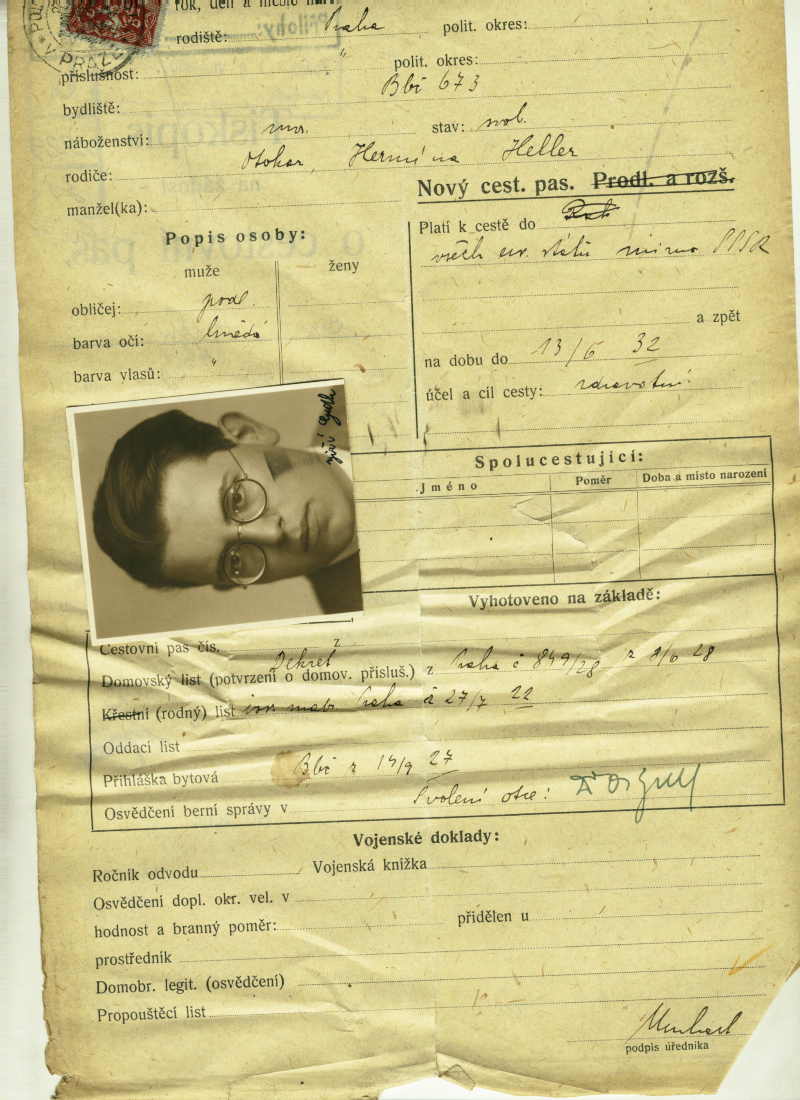 rok, den a místo nar.
Přílohy:
V PRAZE
rodiště: Praha polit. okres:
příslušnost: " polit. okres:
bydliště: Bbč 673
náboženství: stav: svob.
rodiče: Otokar, Hermína Heller
manžel(ka):
Nový cest. pas. Prodl. a rozš.
Popis osoby:
muže ženy
obličej: podl.
barva očí: hnědé
barva vlasů: "
Platí k cestě do
všech evr. států mimo SSSR
a zpět
na dobu do 13/6 32
účel a cíl cesty: zdravotní
Jiří Guth
Spolucestující:
Jméno Poměr Doba a místo narození
Vyhotoveno na základě:
Cestovní pas čís. z
Domovský list (potvrzení o domov. přísluš.) Dekret z Praha č 849/28 z
Křestní (rodný) list isr. matr. Praha č 27/7 22
Oddací list
Přihláška bytová Bbč z 14/9 27
Osvědčení berní správy v Svolení otce:
Vojenské doklady:
Ročník odvodu Vojenská knížka
Osvědčení dopl. okr. vel. v
hodnost a branný poměr: přidělen u
prostředník
Domobr. legit. (osvědčení)
Propouštěcí list
podpis úředníka